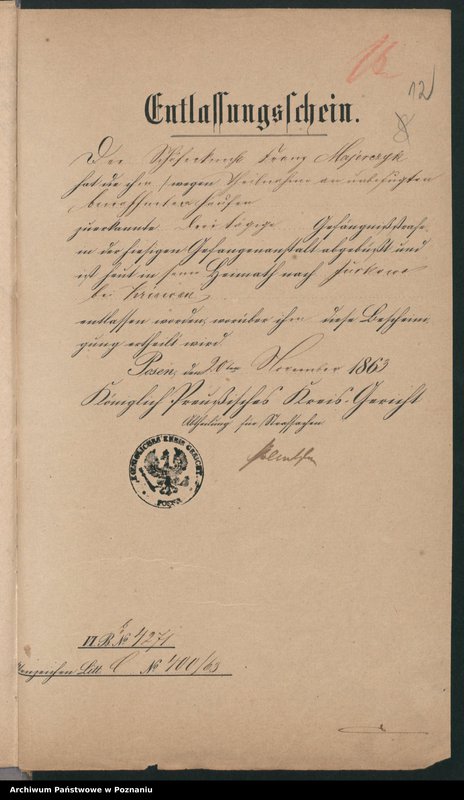 12
Entlassungsschein.
Der Schäferknecht Franz Majerczyk
hat die ihm wegen Theilnahme an unbefugten
bewaffneten Haufen
zuerkannte Gefängnißstrafe
in der hiesigen Gefangenanstalt abgebüßt und
ist heut in seine Heimath nach
bei
entlassen worden, worüber ihm diese Beschein-
gung ertheilt wird.
Posen, den 20ten November 1863
Königlich Preußisches Kreis-Gericht
Abtheilung für Strafsachen
KOENIGLICHES KREIS GERICHT
POSEN
II R. № 4271
Litt. C № 400/63
Archiwum Państwowe w Poznaniu